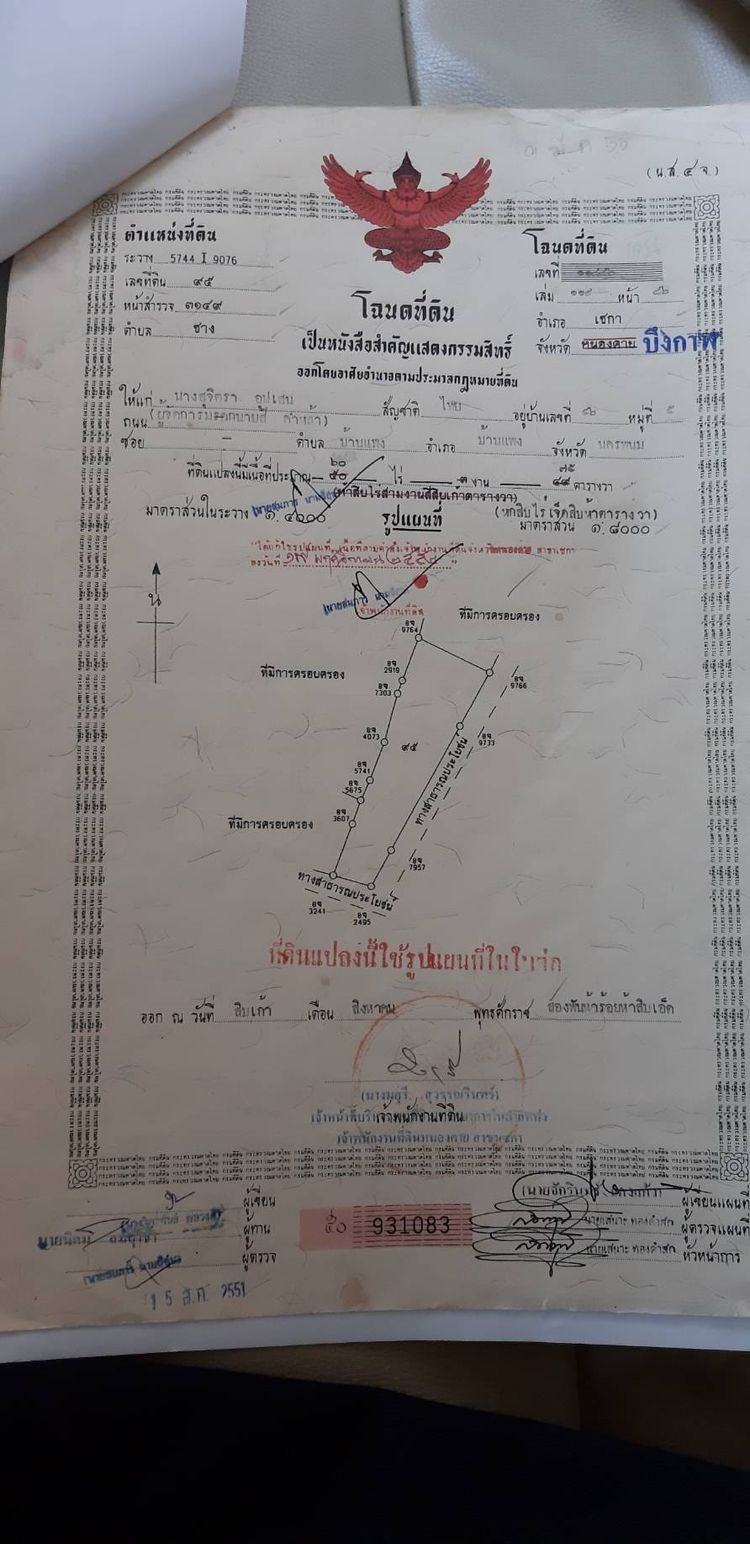 (น.ส.๔ จ.)
ตำแหน่งที่ดิน
ระวาง 5744 I 9076
เลขที่ดิน ๙๕
หน้าสำรวจ ๓๑๔๙
ตำบล ซาง
โฉนดที่ดิน
เลขที่
เล่ม ๑๑๙ หน้า ๕๒
อำเภอ เซกา
จังหวัด หนองคาย บึงกาฬ
โฉนดที่ดิน
เป็นหนังสือสำคัญแสดงกรรมสิทธิ์
ออกโดยอาศัยอำนาจตามประมวลกฎหมายที่ดิน
ให้แก่ นางสุจิตรา อุปเสน สัญชาติ ไทย อยู่บ้านเลขที่ หมู่ที่ ๕
ถนน
ซอย – ตำบล บ้านแพง อำเภอ บ้านแพง จังหวัด นครพนม
๖๐ ๗๕
ที่ดินแปลงนี้มีเนื้อที่ประมาณ ๕๐ ไร่ ๓ งาน ๔๙ ตารางวา
(ห้าสิบไร่สามงานสี่สิบเก้าตารางวา)
(หกสิบไร่เจ็ดสิบห้าตารางวา)
มาตราส่วนในระวาง ๑:๔๐๐๐ รูปแผนที่ มาตราส่วน ๑:๘๐๐๐
ลงวันที่ ๑๗ พฤศจิกายน ๒๕๕๒
เจ้าพนักงานที่ดิน
น
ที่มีการครอบครอง
ที่มีการครอบครอง
อจ 9764
อจ 2919
อจ 7303
อจ 9766
อจ 4073
๙๕
อจ 9733
อจ 5741
อจ 5675
อจ 3607
ที่มีการครอบครอง
ทางสาธารณประโยชน์
อจ 7957
ทางสาธารณประโยชน์
อจ 3241
อจ 2495
ที่ดินแปลงนี้ใช้รูปแผนที่ในใบต่อ
ออก ณ วันที่ สิบเก้า เดือน สิงหาคม พุทธศักราช สองพันห้าร้อยห้าสิบเอ็ด
เจ้าพนักงานที่ดิน
เจ้าพนักงานที่ดินหนองคาย สาขาเซกา
ผู้เขียน
ผู้ทาน
ผู้ตรวจ
๕๐ 931083
ผู้เขียนแผนที่
นายเสนาะ ทองคำสุก ผู้ตรวจแผนที่
นายเสนาะ ทองคำสุก หัวหน้าการ
15 ส.ค. 2551